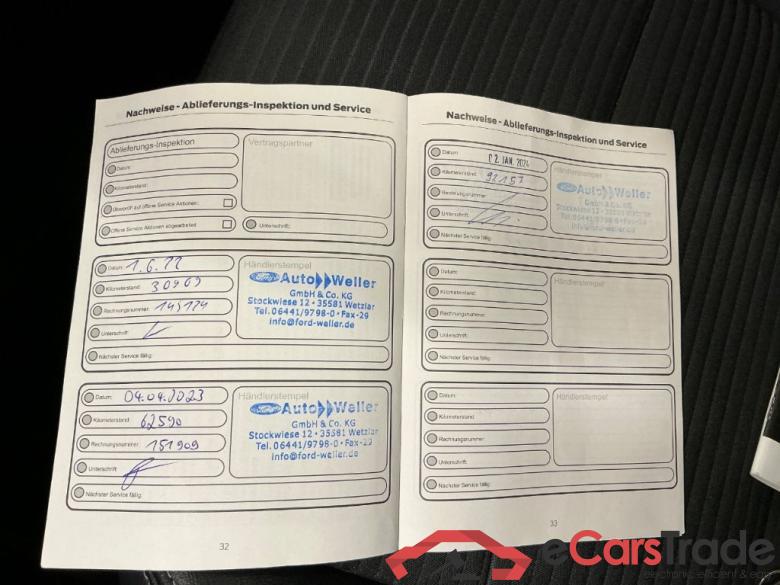 Nachweise - Ablieferungs-Inspektion und Service
Ablieferungs-Inspektion
Datum:
Kilometerstand:
Überprüft auf offene Service Aktionen:
Offene Service Aktionen abgearbeitet:
Vertragspartner
Unterschrift:
Datum: 1.6.22
Kilometerstand: 30903
Rechnungsnummer:
Unterschrift:
Nächster Service fällig:
Händlerstempel
Ford Auto Weller
GmbH & Co. KG
Stockwiese 12 • 35581 Wetzlar
Tel. 06441/9798-0 • Fax-29
info@ford-weller.de
Datum: 04.04.2023
Kilometerstand: 62590
Rechnungsnummer: 151909
Unterschrift:
Nächster Service fällig:
Händlerstempel
Ford Auto Weller
GmbH & Co. KG
Stockwiese 12 • 35581 Wetzlar
Tel. 06441/9798-0 • Fax-29
info@ford-weller.de
32
Nachweise - Ablieferungs-Inspektion und Service
Datum: 02. JAN. 2024
Kilometerstand: 92157
Rechnungsnummer:
Unterschrift:
Nächster Service fällig:
Händlerstempel
Ford Auto Weller
GmbH & Co. KG
Stockwiese 12 • 35581 Wetzlar
Tel. 06441/9798-0 • Fax-29
info@ford-weller.de
Datum:
Kilometerstand:
Rechnungsnummer:
Unterschrift:
Nächster Service fällig:
Händlerstempel
Datum:
Kilometerstand:
Rechnungsnummer:
Unterschrift:
Nächster Service fällig:
Händlerstempel
33
eCarsTrade